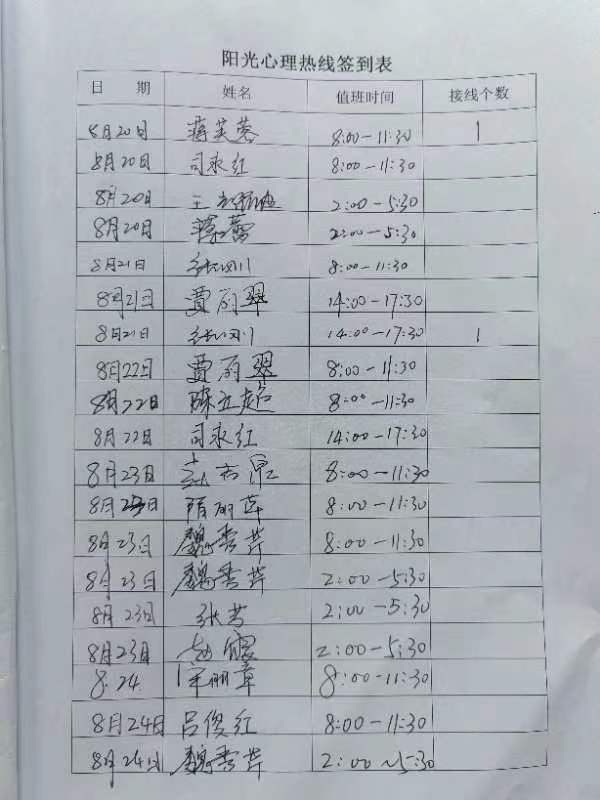 阳光心理热线签到表
日 期 姓名 值班时间 接线个数
8月20日 蒋芙蓉 8:00-11:30 1
8月20日 司永红 8:00-11:30
8月20日 王 2:00-5:30
8月20日 蕾 2:00-5:30
8月21日 8:00-11:30
8月21日 贾丽翠 14:00-17:30
8月21日 14:00-17:30 1
8月22日 贾丽翠 8:00-11:30
8月22日 陈立超 8:00-11:30
8月22日 司永红 14:00-17:30
8月23日 8:00-11:30
8月23日 隋丽萍 8:00-11:30
8月23日 魏秀芹 8:00-11:30
8月23日 魏秀芹 2:00-5:30
8月23日 张芳 2:00-5:30
8月23日 赵霞 2:00-5:30
8.24 8:00-11:30
8月24日 吕俊红 8:00-11:30
8月24日 魏秀芹 2:00~5:30